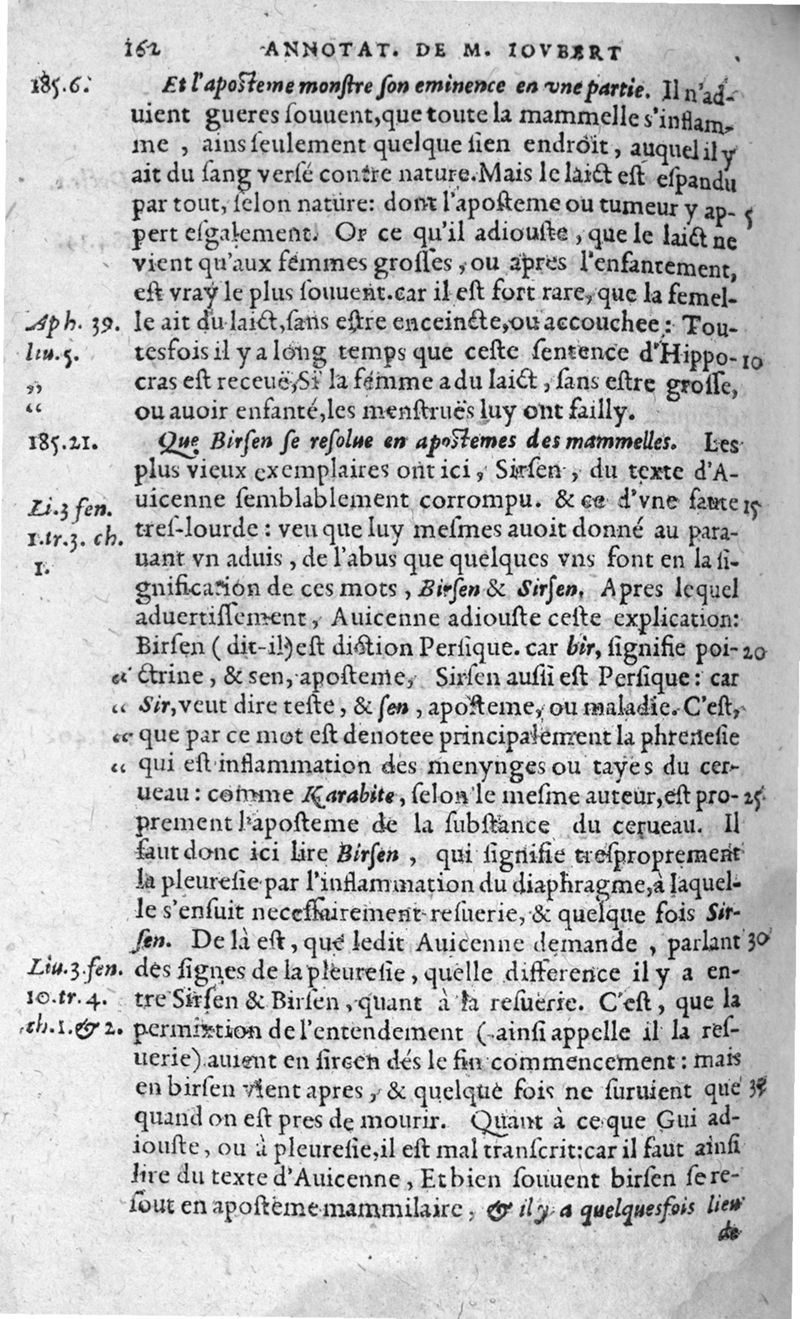 162 ANNOTAT. DE M. IOVBERT
185.6. Et l'aposteme monstre son eminence en vne partie. Il n'ad-
uient gueres souuent, que toute la mammelle s'inflam-
me, ains seulement quelque sien endroit, auquel il y
ait du sang versé contre nature. Mais le laict est espandu
par tout, selon nature: dont l'aposteme ou tumeur y ap- 5
pert esgalement. Or ce qu'il adiouste, que le laict ne
vient qu'aux femmes grosses, ou apres l'enfantement,
est vray le plus souuent. car il est fort rare, que la femel-
Aph. 39. le ait du laict, sans estre enceincte, ou accouchee: Tou-
liu. 5. tesfois il y a long temps que ceste sentence d'Hippo- 10
„ cras est receuë, Si la femme a du laict, sans estre grosse,
“ ou auoir enfanté, les menstruës luy ont failly.
185.21. Que Birsen se resolue en apostemes des mammelles. Les
plus vieux exemplaires ont ici, Sirsen, du texte d'A-
Li. 3 fen. uicenne semblablement corrompu. & ce d'vne faute 15
1. tr. 3. ch. tres-lourde: veu que luy mesmes auoit donné au para-
1. uant vn aduis, de l'abus que quelques vns font en la si-
gnification de ces mots, Birsen & Sirsen. Apres lequel
aduertissement, Auicenne adiouste ceste explication:
Birsen (dit-il) est diction Persique. car bir, signifie poi- 20
“ ctrine, & sen, aposteme, Sirsen aussi est Persique: car
“ Sir, veut dire teste, & sen, aposteme, ou maladie. C'est,
“ que par ce mot est denotee principalement la phrenesie
“ qui est inflammation des menynges ou tayes du cer-
ueau: comme Karabite, selon le mesme auteur, est pro- 25
prement l'aposteme de la substance du cerueau. Il
faut donc ici lire Birsen, qui signifie tresproprement
la pleuresie par l'inflammation du diaphragme, à laquel-
le s'ensuit necessairement resuerie, & quelque fois Sir-
sen. De là est, que ledit Auicenne demande, parlant 30
Liu. 3. fen. des signes de la pleuresie, quelle difference il y a en-
10. tr. 4. tre Sirsen & Birsen, quant à la resuerie. C'est, que la
ch. 1. & 2. permixtion de l'entendement (ainsi appelle il la res-
uerie) auient en sircen dés le fin commencement: mais
en birsen vient apres, & quelque fois ne suruient que 35
quand on est pres de mourir. Quant à ce que Gui ad-
iouste, ou à pleuresie, il est mal transcrit: car il faut ainsi
lire du texte d'Auicenne, Et bien souuent birsen se re-
sout en aposteme mammilaire, & il y a quelquesfois lieu
de